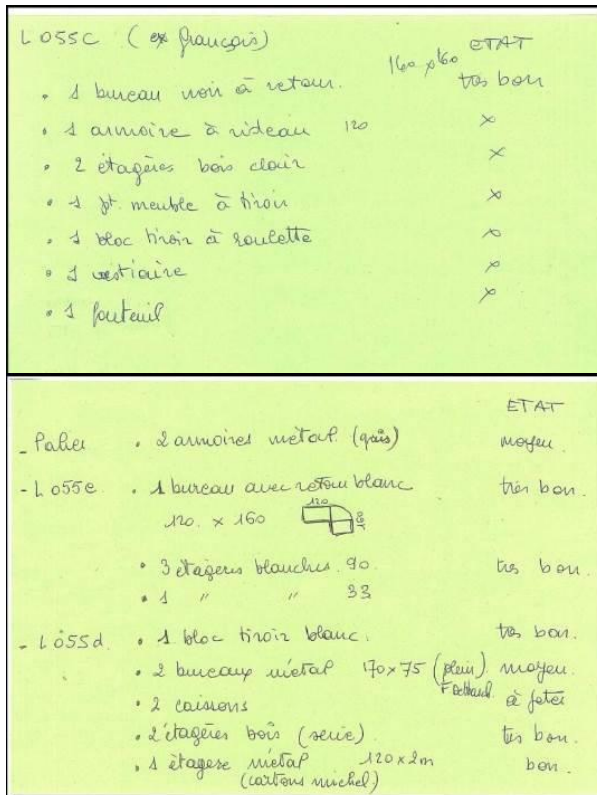 L055c (ex françois) ETAT
160 x 160
. 1 bureau noir à retour. très bon
. 1 armoire à rideau 120 x
. 2 étagères bois clair x
. 1 pt. meuble à tiroir x
. 1 bloc tiroir à roulette x
. 1 vestiaire x
. 1 fauteuil x
ETAT
- Palier . 2 armoires métal (gris) moyen.
- L055e . 1 bureau avec retour blanc très bon.
120. x 160 120 160
. 3 étagères blanches. 90. très bon.
. 1 " " 33
- L055d. . 1 bloc tiroir blanc. très bon.
. 2 bureaux métal 170x75 (plein). moyen.
. 2 caissons à jeter
. 2 étagères bois (série) très bon.
. 1 étagère métal 120x2m bon.
(cartons michel)